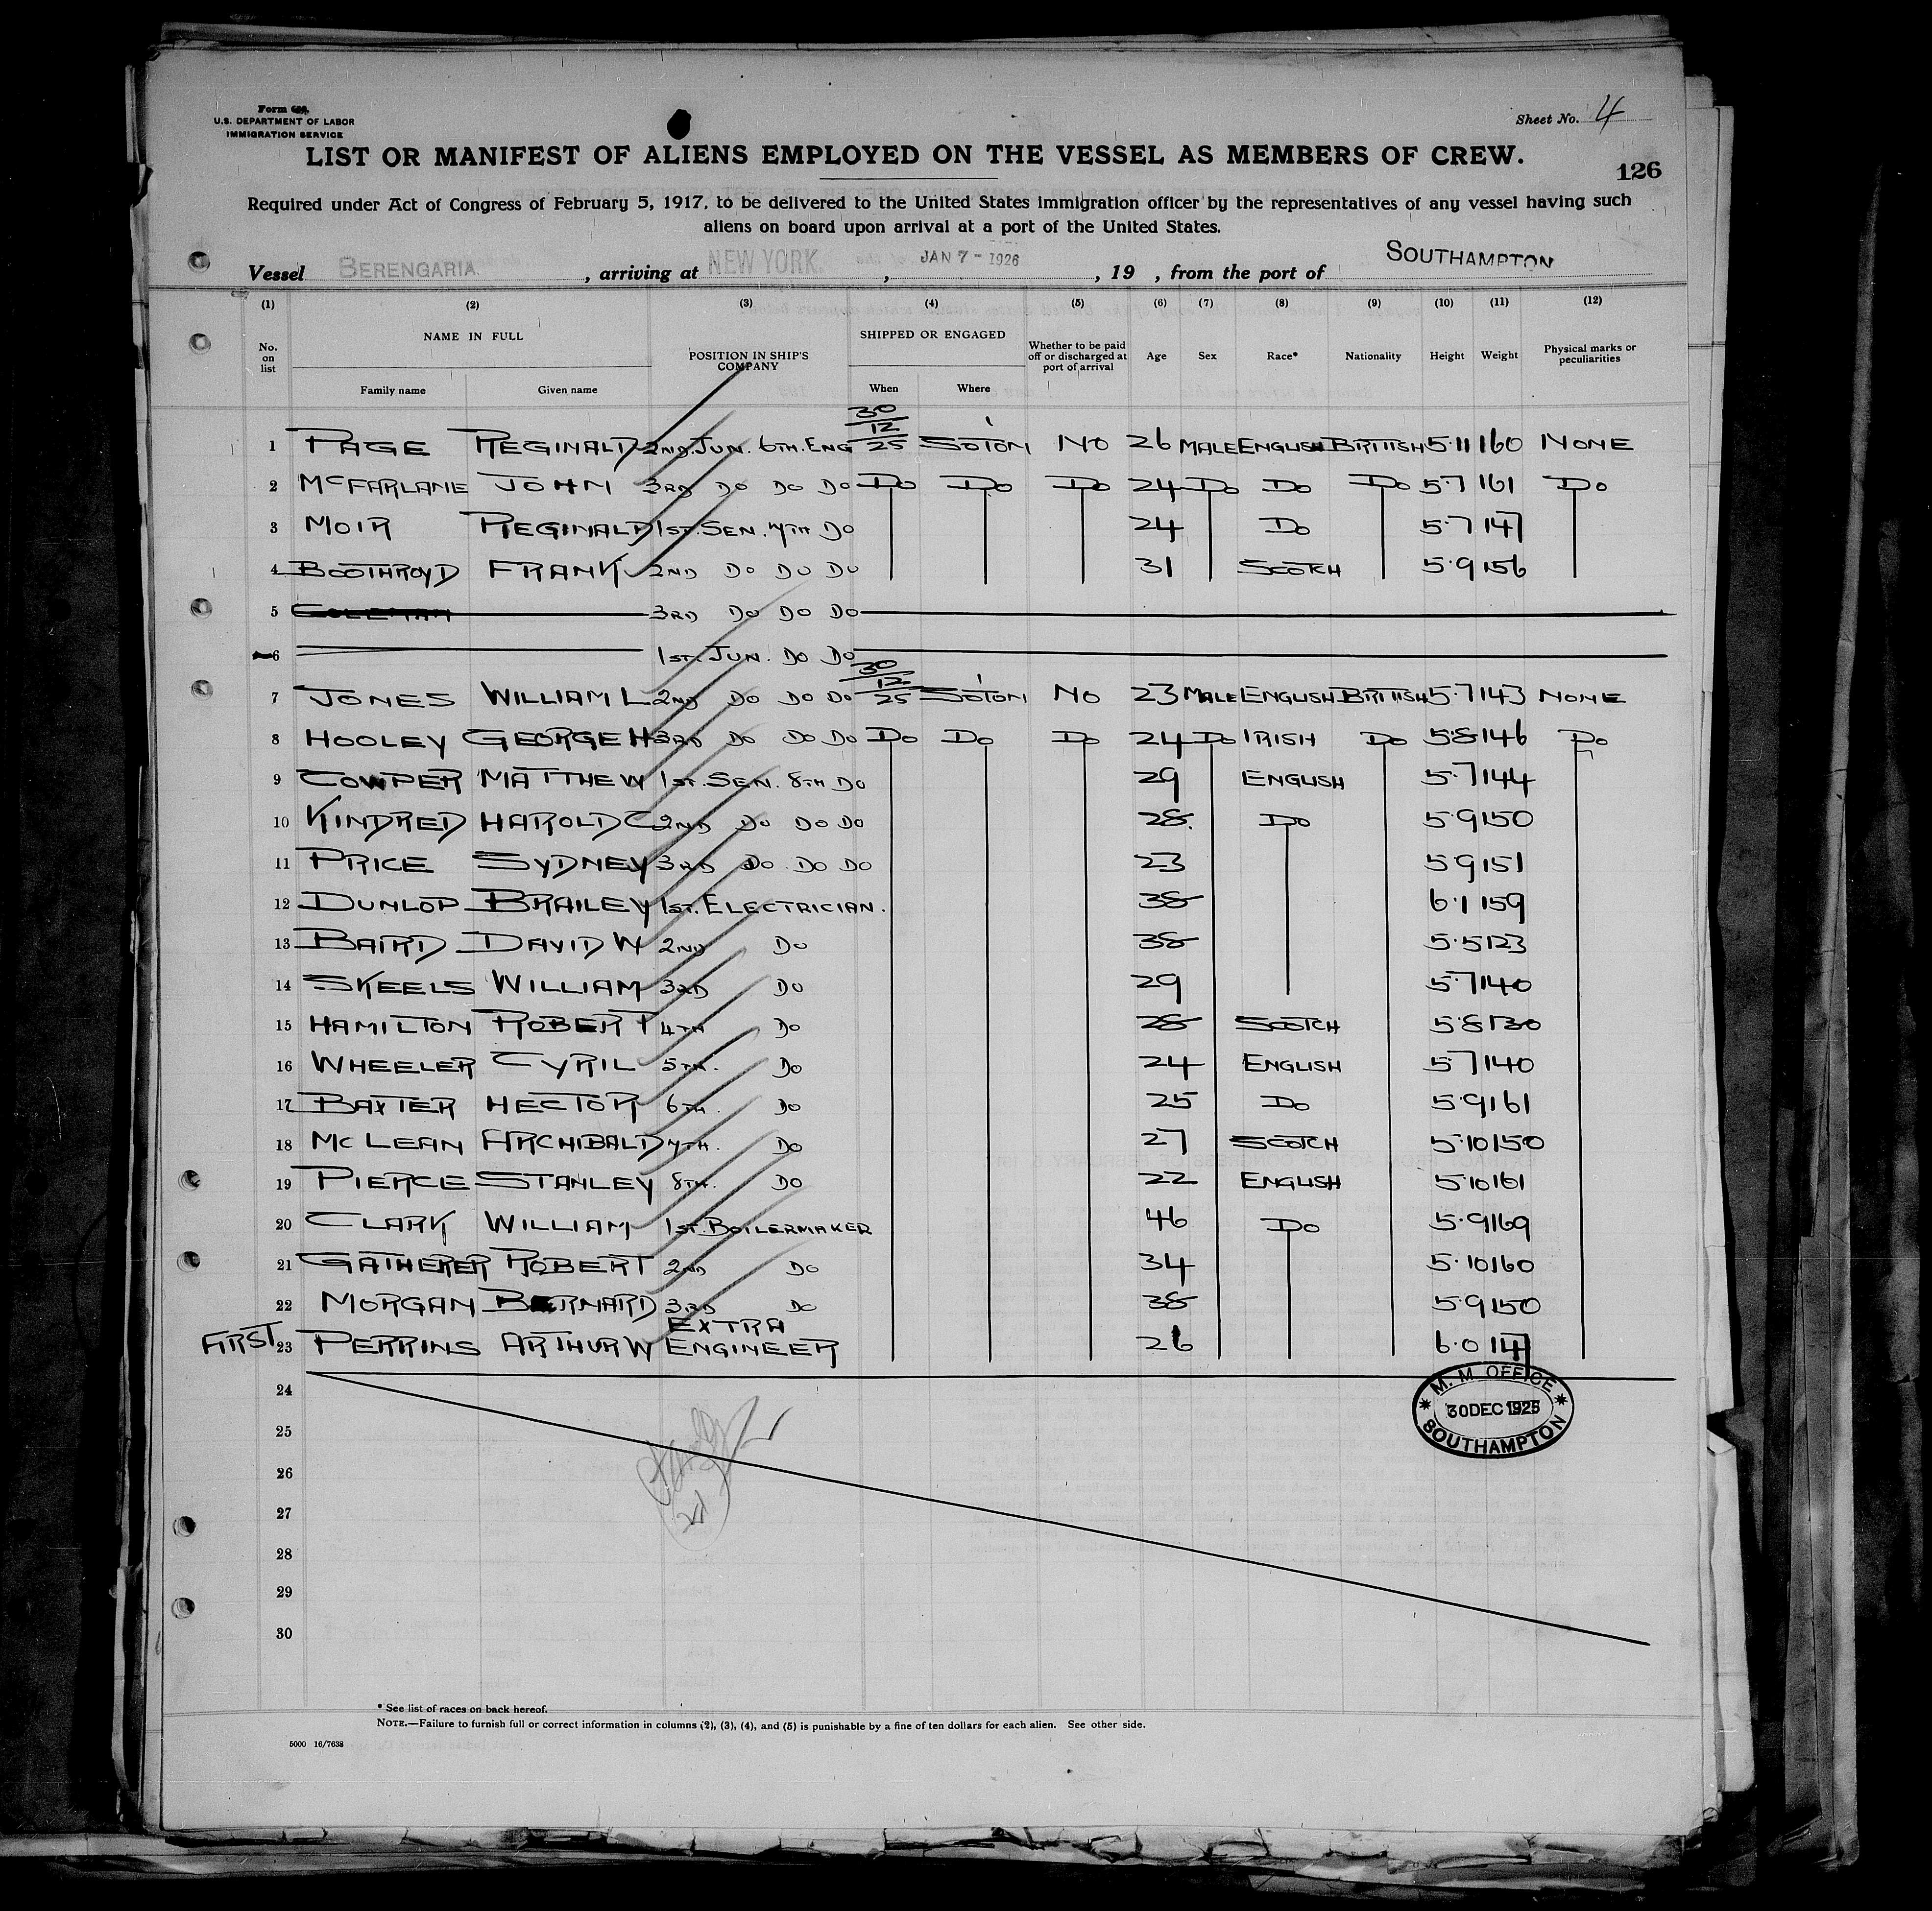 Form 689
U.S. DEPARTMENT OF LABOR
IMMIGRATION SERVICE
Sheet No. 4
LIST OR MANIFEST OF ALIENS EMPLOYED ON THE VESSEL AS MEMBERS OF CREW.
126
Required under Act of Congress of February 5, 1917, to be delivered to the United States immigration officer by the representatives of any vessel having such
aliens on board upon arrival at a port of the United States.
Vessel BERENGARIA, arriving at NEW YORK, JAN 7 - 1926, 19 , from the port of SOUTHAMPTON
(1) (2) (3) (4) (5) (6) (7) (8) (9) (10) (11) (12)
No. on list NAME IN FULL POSITION IN SHIP'S COMPANY SHIPPED OR ENGAGED Whether to be paid off or discharged at port of arrival Age Sex Race* Nationality Height Weight Physical marks or peculiarities
Family name Given name When Where
1 PAGE REGINALD 2ND. JUN. 6TH. ENG 30/12/25 SO'TON NO 26 MALE ENGLISH BRITISH 5.11 160 NONE
2 McFARLANE JOHN 3RD DO DO DO DO DO DO 24 DO DO DO 5.7 161 DO
3 MOIR REGINALD 1ST. SEN. 7TH DO 24 DO 5.7 147
4 BOOTHROYD FRANK 2ND DO DO DO 31 SCOTCH 5.9 156
5 COLEMAN 3RD DO DO DO
6 1ST. JUN. DO DO
7 JONES WILLIAM L 2ND DO DO DO 30/12/25 SO'TON NO 23 MALE ENGLISH BRITISH 5.7 143 NONE
8 HOOLEY GEORGE H 3RD DO DO DO DO DO DO 24 DO IRISH DO 5.8 146 DO
9 COWPER MATTHEW 1ST. SEN. 8TH DO 29 ENGLISH 5.7 144
10 KINDRED HAROLD C 2ND DO DO DO 28. DO 5.9 150
11 PRICE SYDNEY 3RD DO DO DO 23 5.9 151
12 DUNLOP BRAILEY 1ST. ELECTRICIAN. 38 6.1 159
13 BAIRD DAVID W 2ND DO 38 5.5 123
14 SKEELS WILLIAM 3RD DO 29 5.7 140
15 HAMILTON ROBERT 4TH DO 28 SCOTCH 5.8 130
16 WHEELER CYRIL 5TH. DO 24 ENGLISH 5.7 140
17 BAXTER HECTOR 6TH. DO 25 DO 5.9 161
18 McLEAN ARCHIBALD 7TH. DO 27 SCOTCH 5.10 150
19 PIERCE STANLEY 8TH. DO 22 ENGLISH 5.10 161
20 CLARK WILLIAM 1ST. BOILERMAKER 46 DO 5.9 169
21 GATHERER ROBERT 2ND DO 34 5.10 160
22 MORGAN BERNARD 3RD DO 38 5.9 150
FIRST 23 PERRINS ARTHUR W EXTRA ENGINEER 26 6.0 147
24
25
26
27
28
29
30
M. M. OFFICE
30 DEC 1925
SOUTHAMPTON
* See list of races on back hereof.
NOTE.—Failure to furnish full or correct information in columns (2), (3), (4), and (5) is punishable by a fine of ten dollars for each alien. See other side.
5000 16/7638